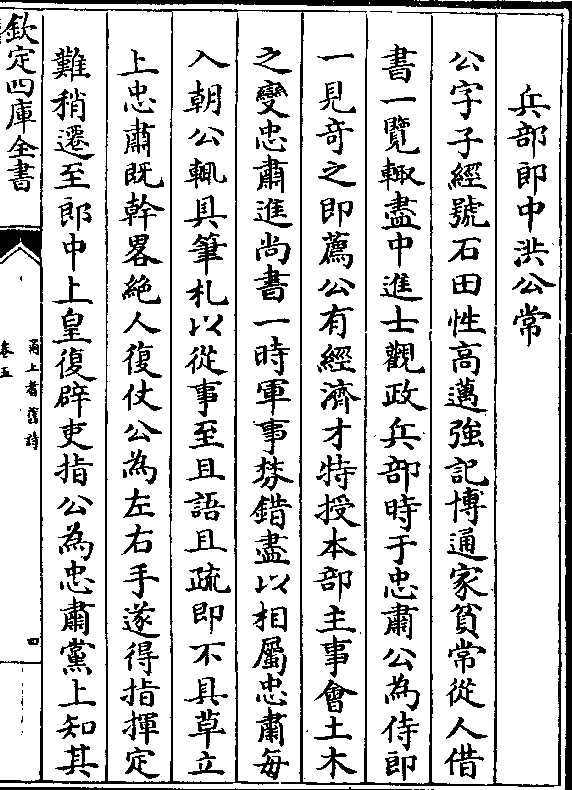 兵部郎中洪公常
公字子經號石田性高邁強記博通家貧常從人借
書一覽輙盡中進士觀政兵部時于忠肅公為侍郎
一見奇之即薦公有經濟才特授本部主事會土木
之變忠肅進尚書一時軍事棼錯盡以相屬忠肅每
入朝公輙具筆札以從事至且語且疏即不具草立
上忠肅既幹畧絶人復仗公為左右手遂得指揮定
難稍遷至郎中上皇復辟吏指公為忠肅黨上知其
欽定四庫全書
甬上耆舊詩
卷五
四